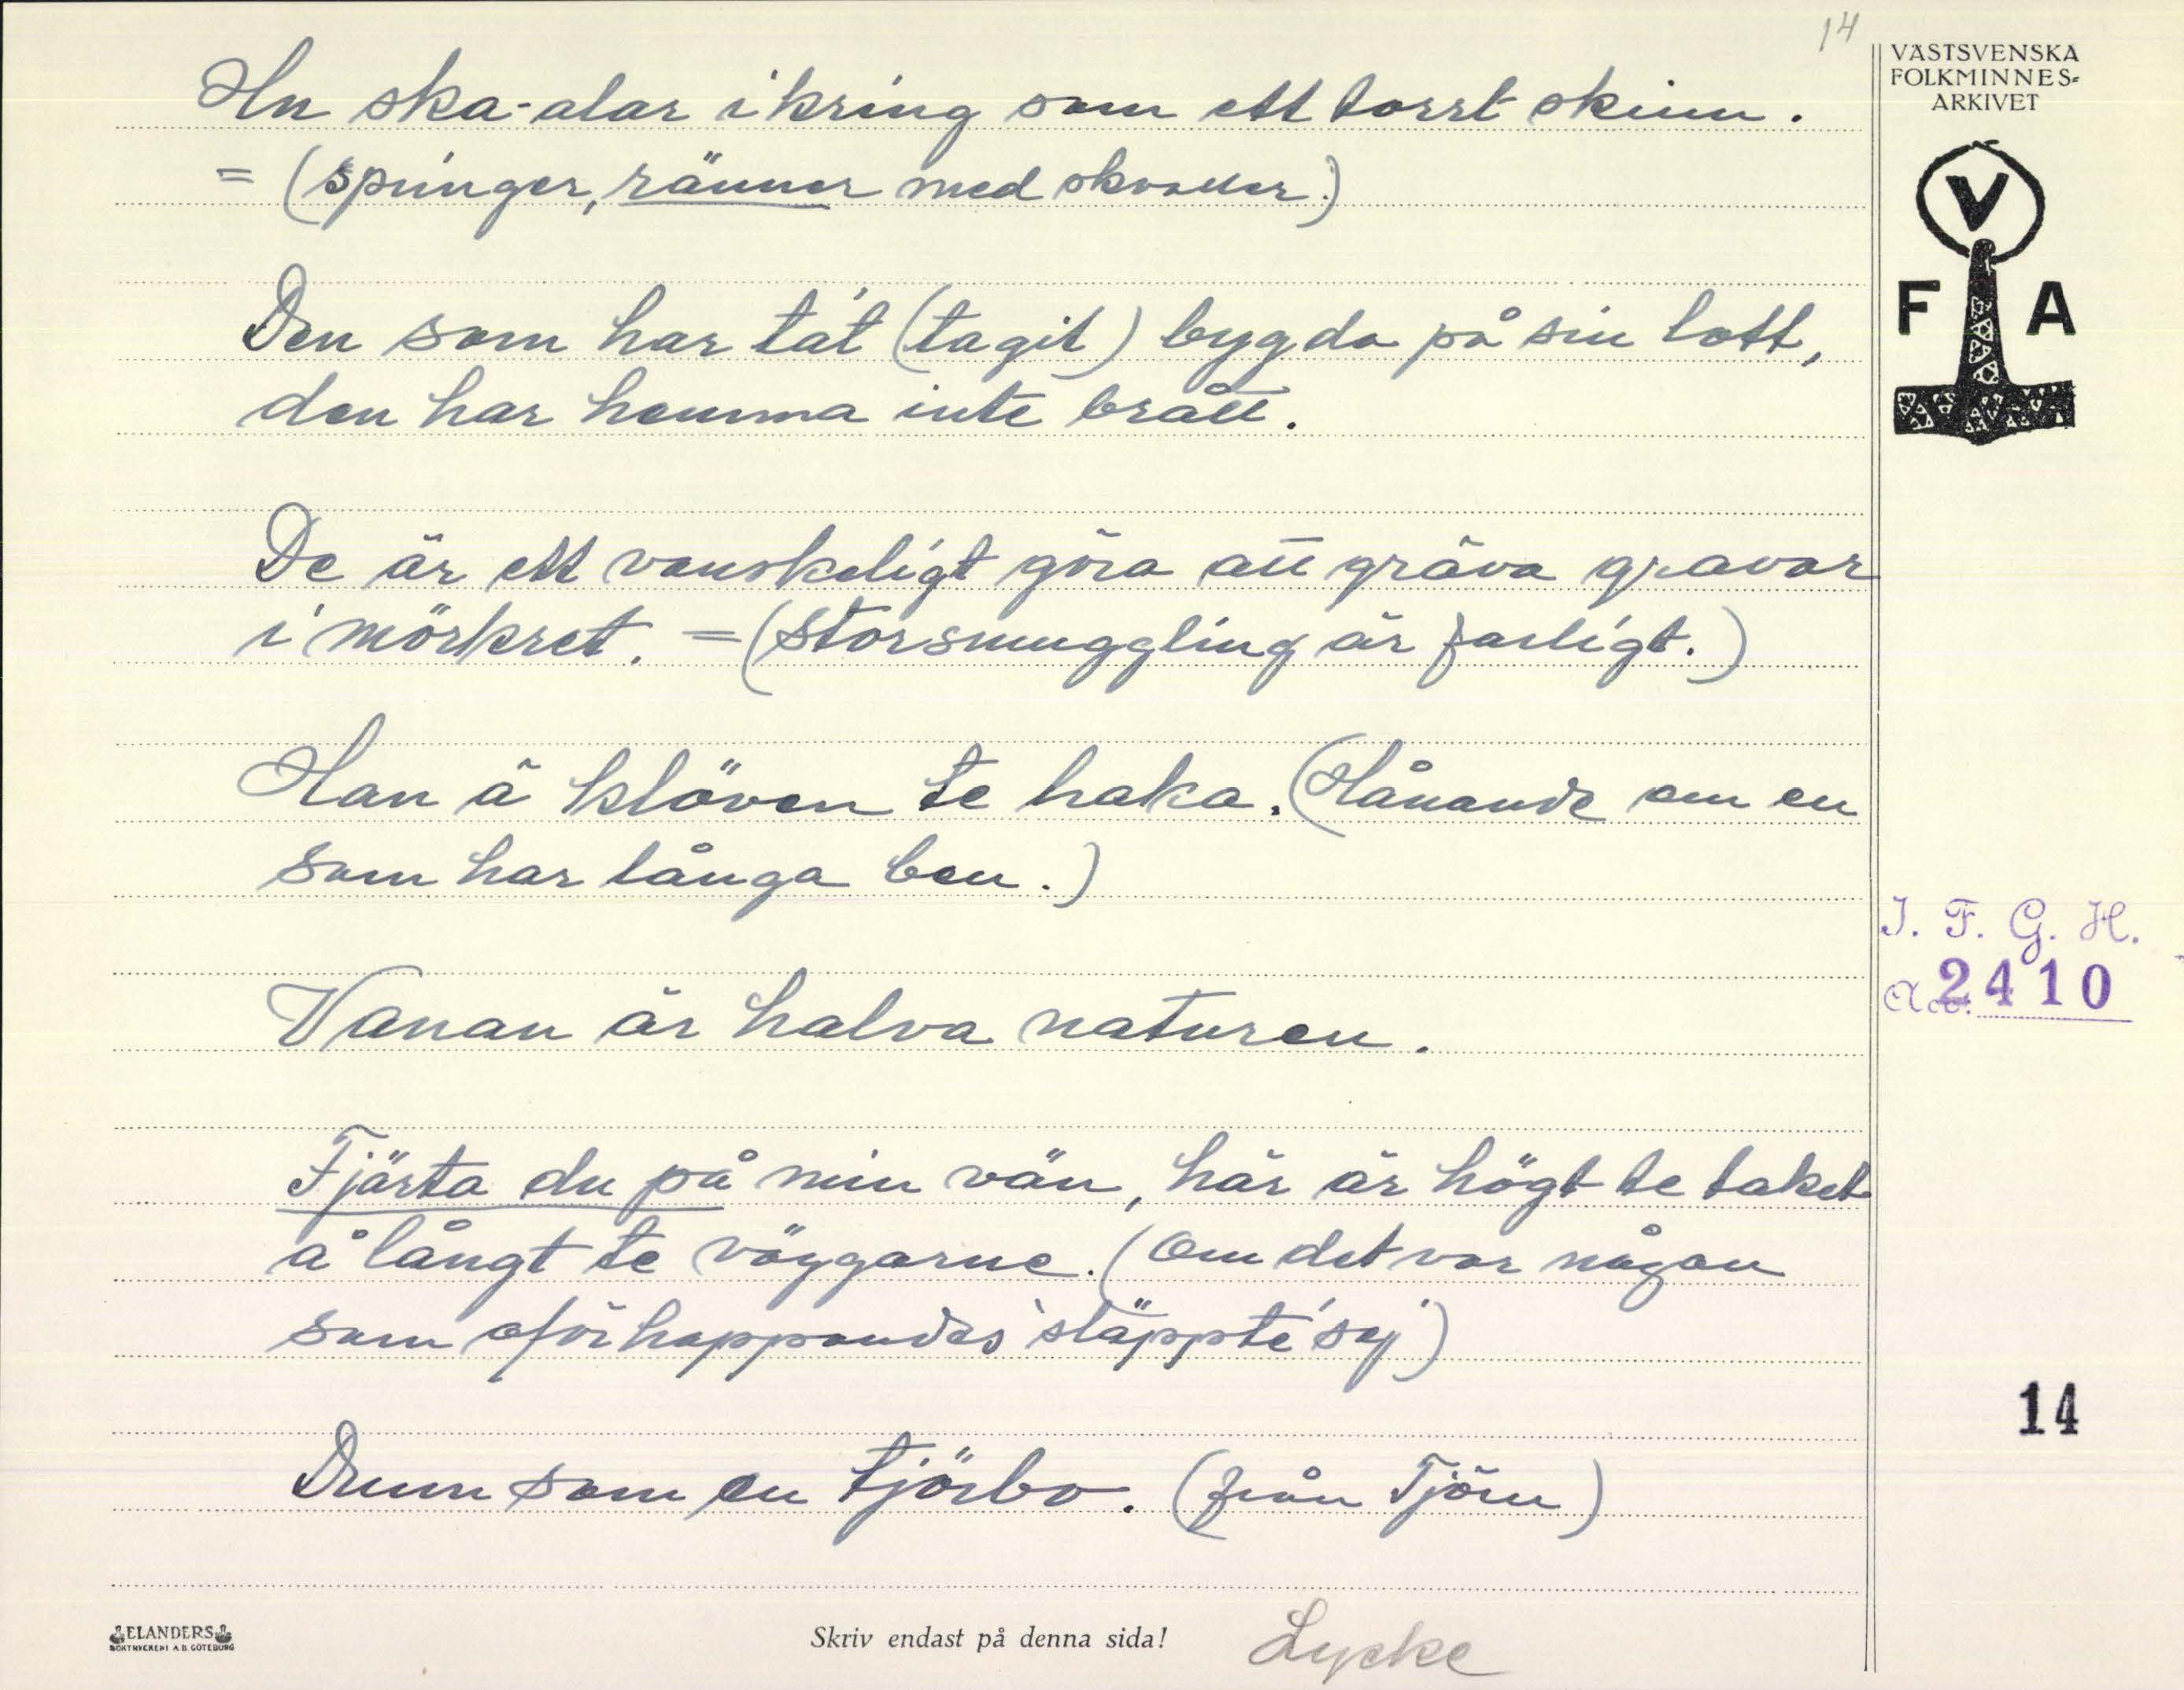 14
VÄSTSVENSKA
FOLKMINNES-
ARKIVET
V
F A
Hu ska-alar ikring som ett torrt skinn.
= (springer, ränner med skvaller.)
Den som har tat (tagit) bygda på sin lott,
den har hemma inte brått.
De är ett vanskeligt göra att gräva gravar
i mörkret. = (Storsmuggling är farligt.)
Han ä klöven te haka. (Hånande om en
som har långa ben.)
Vanan är halva naturen.
I. F. G. H.
Acc. 2410
Fjärta du på min vän, här är högt te taket
å långt te väggarne. (Om det var någon
som oförhappandes släppte sej)
14
Drum som en tjörbo. (från Tjörn)
ELANDERS
BOKTRYCKERI A.B. GÖTEBORG
Skriv endast på denna sida!
Lycke